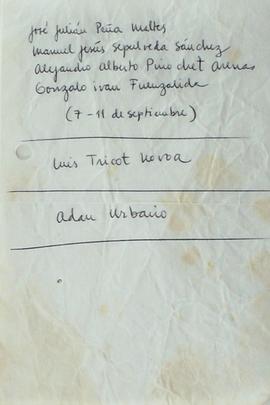 José Julián Peña Maltes
Manuel Jesús Sepulveda Sánchez
Alejandro Alberto Pinochet Arenas
Gonzalo ivan Fuenzalida
(7-11 de septiembre)
Luis Tricot Novoa
Adan Urbario